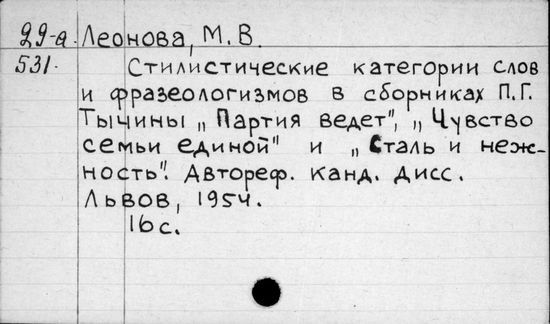 29-а. Леонова, М. В.
531. Стилистические категории слов
и фразеологизмов в сборниках П.Г.
Тычины „Партия ведет", „Чувство
семьи единой" и „Сталь и неж-
ность". Автореф. канд. дисс.
Львов, 1954.
16 с.